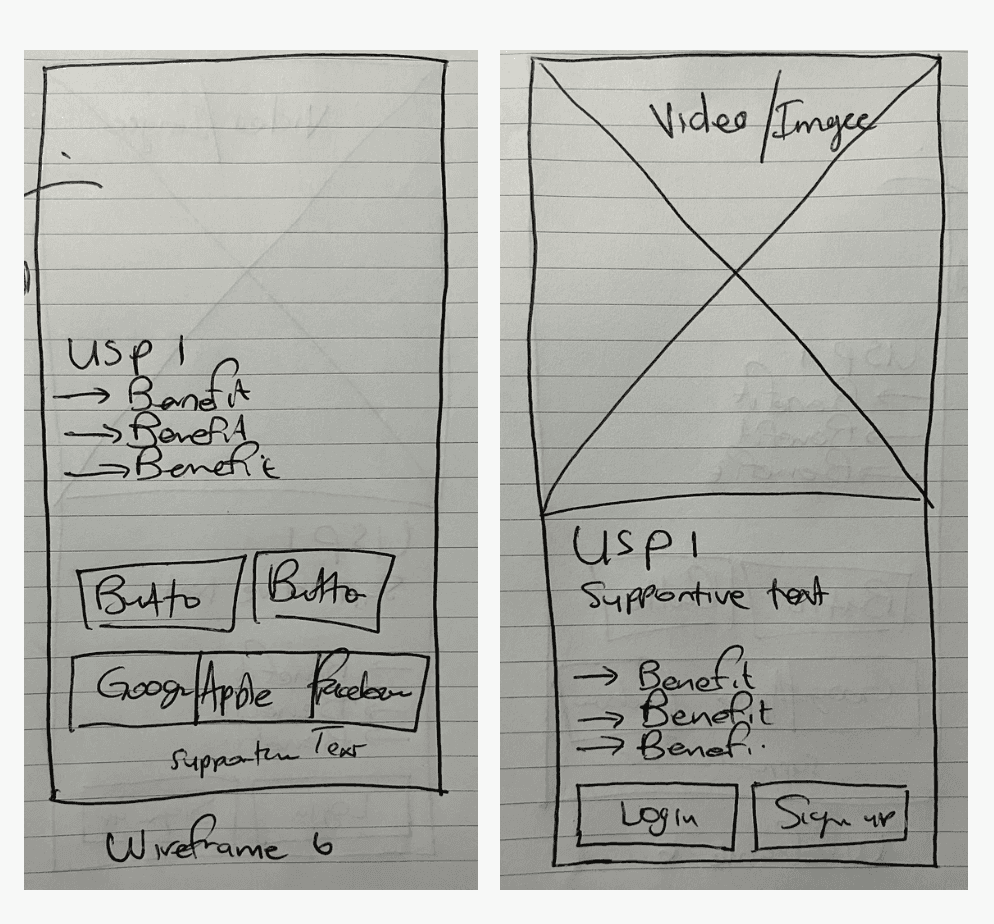 USP 1
→ Benefit
→ Benefit
→ Benefit
Butto Butto
Goog Apple Facebook
Supportive Text
Wireframe 6
Video/Imgee
USP 1
Supportive text
→ Benefit
→ Benefit
→ Benefi..
Login Sign up